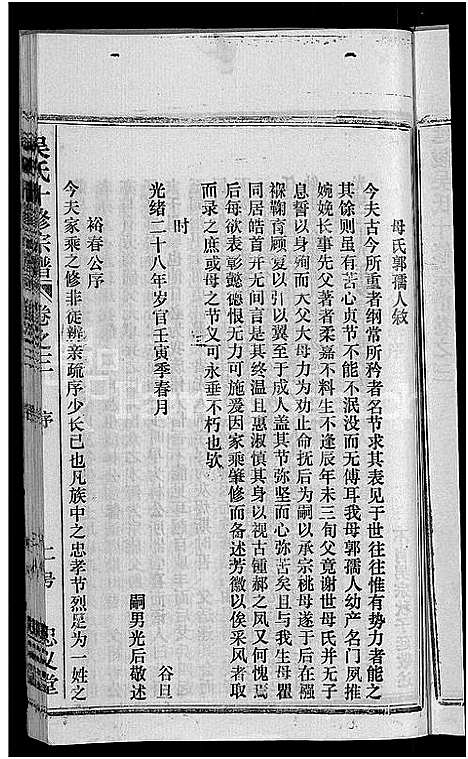 母氏郭孺人敘
今夫古今所重者纲常所矜者名节求其表见于世往往惟有势力者能之
其馀则虽有苦心贞节不能不泯没而无傅耳我母郭孺人幼产名门夙推
婉娩长事先父著者柔嘉不料生不逢辰年未三旬父竟谢世母氏并无子
息誓以身殉而大父大母力为劝止命抚后为嗣以承宗桃母遂于后在襁
褓鞠育顾复以引以翼至于成人盖其节弥坚而心弥苦矣且与我生母瞿
同居皓首并无间言是其终温且惠淑慎其身以视古锺郝之凤又何愧焉
后每欲表彰懿德恨无力可施爱因家乘肇修而备述芳徽以俟采风者取
而录之庶或母之节义可永垂不朽也欤
时
光绪二十八年岁官壬寅季春月
谷旦
嗣男光后敬述
裕春公序
今夫家乘之修非徒辨亲疏序少长已也凡族中之忠孝节烈足为一姓之
吴氏十修宗谱
卷之三
序